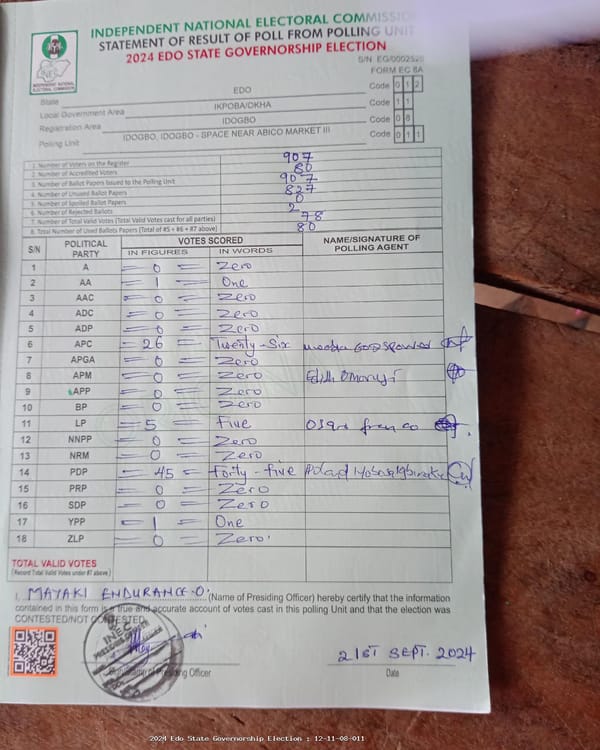 INDEPENDENT NATIONAL ELECTORAL COMMISSION
STATEMENT OF RESULT OF POLL FROM POLLING UNIT
2024 EDO STATE GOVERNORSHIP ELECTION
S/N: EG/0002525
FORM EC 8A
State EDO Code 0 1 2
Local Government Area IKPOBA/OKHA Code 1 1
Registration Area IDOGBO Code 0 8
Polling Unit IDOGBO, IDOGBO - SPACE NEAR ABICO MARKET III Code 0 1 1
1. Number of Voters on the Register 907
2. Number of Accredited Voters 80
3. Number of Ballot Papers Issued to the Polling Unit 907
4. Number of Unused Ballot Papers 827
5. Number of Spoiled Ballot Papers 0
6. Number of Rejected Ballots 2
7. Number of Total Valid Votes (Total Valid Votes cast for all parties) 78
8. Total Number of Used Ballots Papers (Total of #5 + #6 + #7 above) 80
S/N POLITICAL PARTY VOTES SCORED NAME/SIGNATURE OF POLLING AGENT
IN FIGURES IN WORDS
1 A = 0 = Zero
2 AA = 1 = One
3 AAC = 0 = Zero
4 ADC = 0 = Zero
5 ADP = 0 = Zero
6 APC = 26 = Twenty-Six
7 APGA = 0 = Zero
8 APM = 0 = Zero Edith Omoruyi
9 APP = 0 = Zero
10 BP = 0 = Zero
11 LP = 5 = Five
12 NNPP = 0 = Zero
13 NRM = 0 = Zero
14 PDP = 45 = Forty-five
15 PRP = 0 = Zero
16 SDP = 0 = Zero
17 YPP = 1 = One
18 ZLP = 0 = Zero.
TOTAL VALID VOTES
(Record Total Valid Votes under #7 above)
I, MAYAKI ENDURANCE O. (Name of Presiding Officer) hereby certify that the information
contained in this form is a true and accurate account of votes cast in this polling Unit and that the election was
CONTESTED/NOT CONTESTED.
INEC
21ST SEPT. 2024
Sign/Stamp of Presiding Officer Date
2024 Edo State Governorship Election : 12-11-08-011